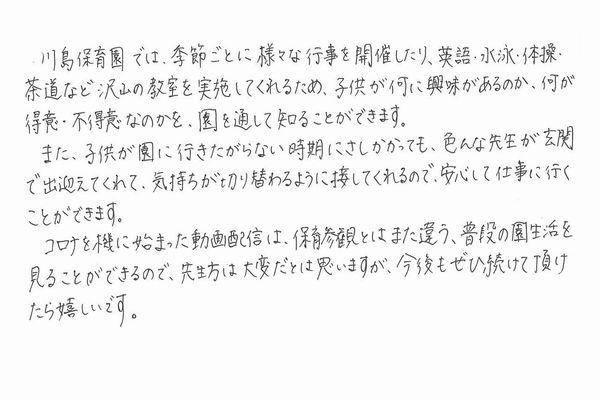 川島保育園では、季節ごとに様々な行事を開催したり、英語・水泳・体操・
茶道など沢山の教室を実施してくれるため、子供が何に興味があるのか、何が
得意・不得意なのかを、園を通して知ることができます。
また、子供が園に行きたがらない時期にさしかかっても、色んな先生が玄関
で出迎えてくれて、気持ちが切り替わるように接してくれるので、安心して仕事に行く
ことができます。
コロナを機に始まった動画配信は、保育参観とはまた違う、普段の園生活を
見ることができるので、先生方は大変だとは思いますが、今後もぜひ続けて頂け
たら嬉しいです。